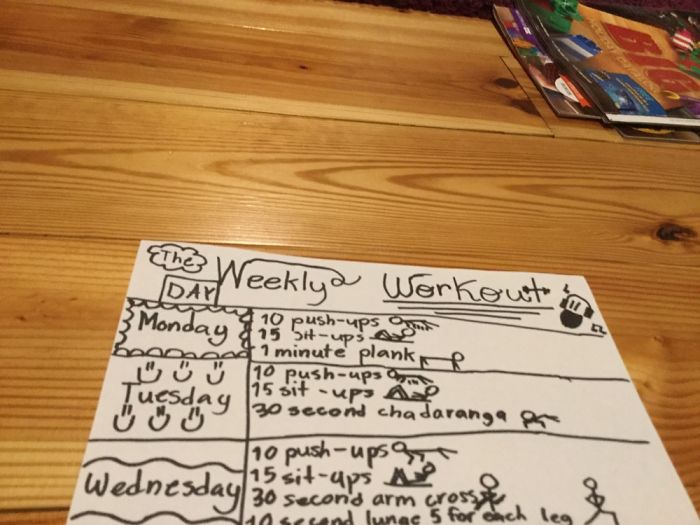 BIG
The
Weekly Workout
DAY
Monday
10 push-ups
15 sit-ups
1 minute plank
Tuesday
10 push-ups
15 sit-ups
30 second chadaranga
Wednesday
10 push-ups
15 sit-ups
30 second arm cross
10 second lunge 5 for each leg